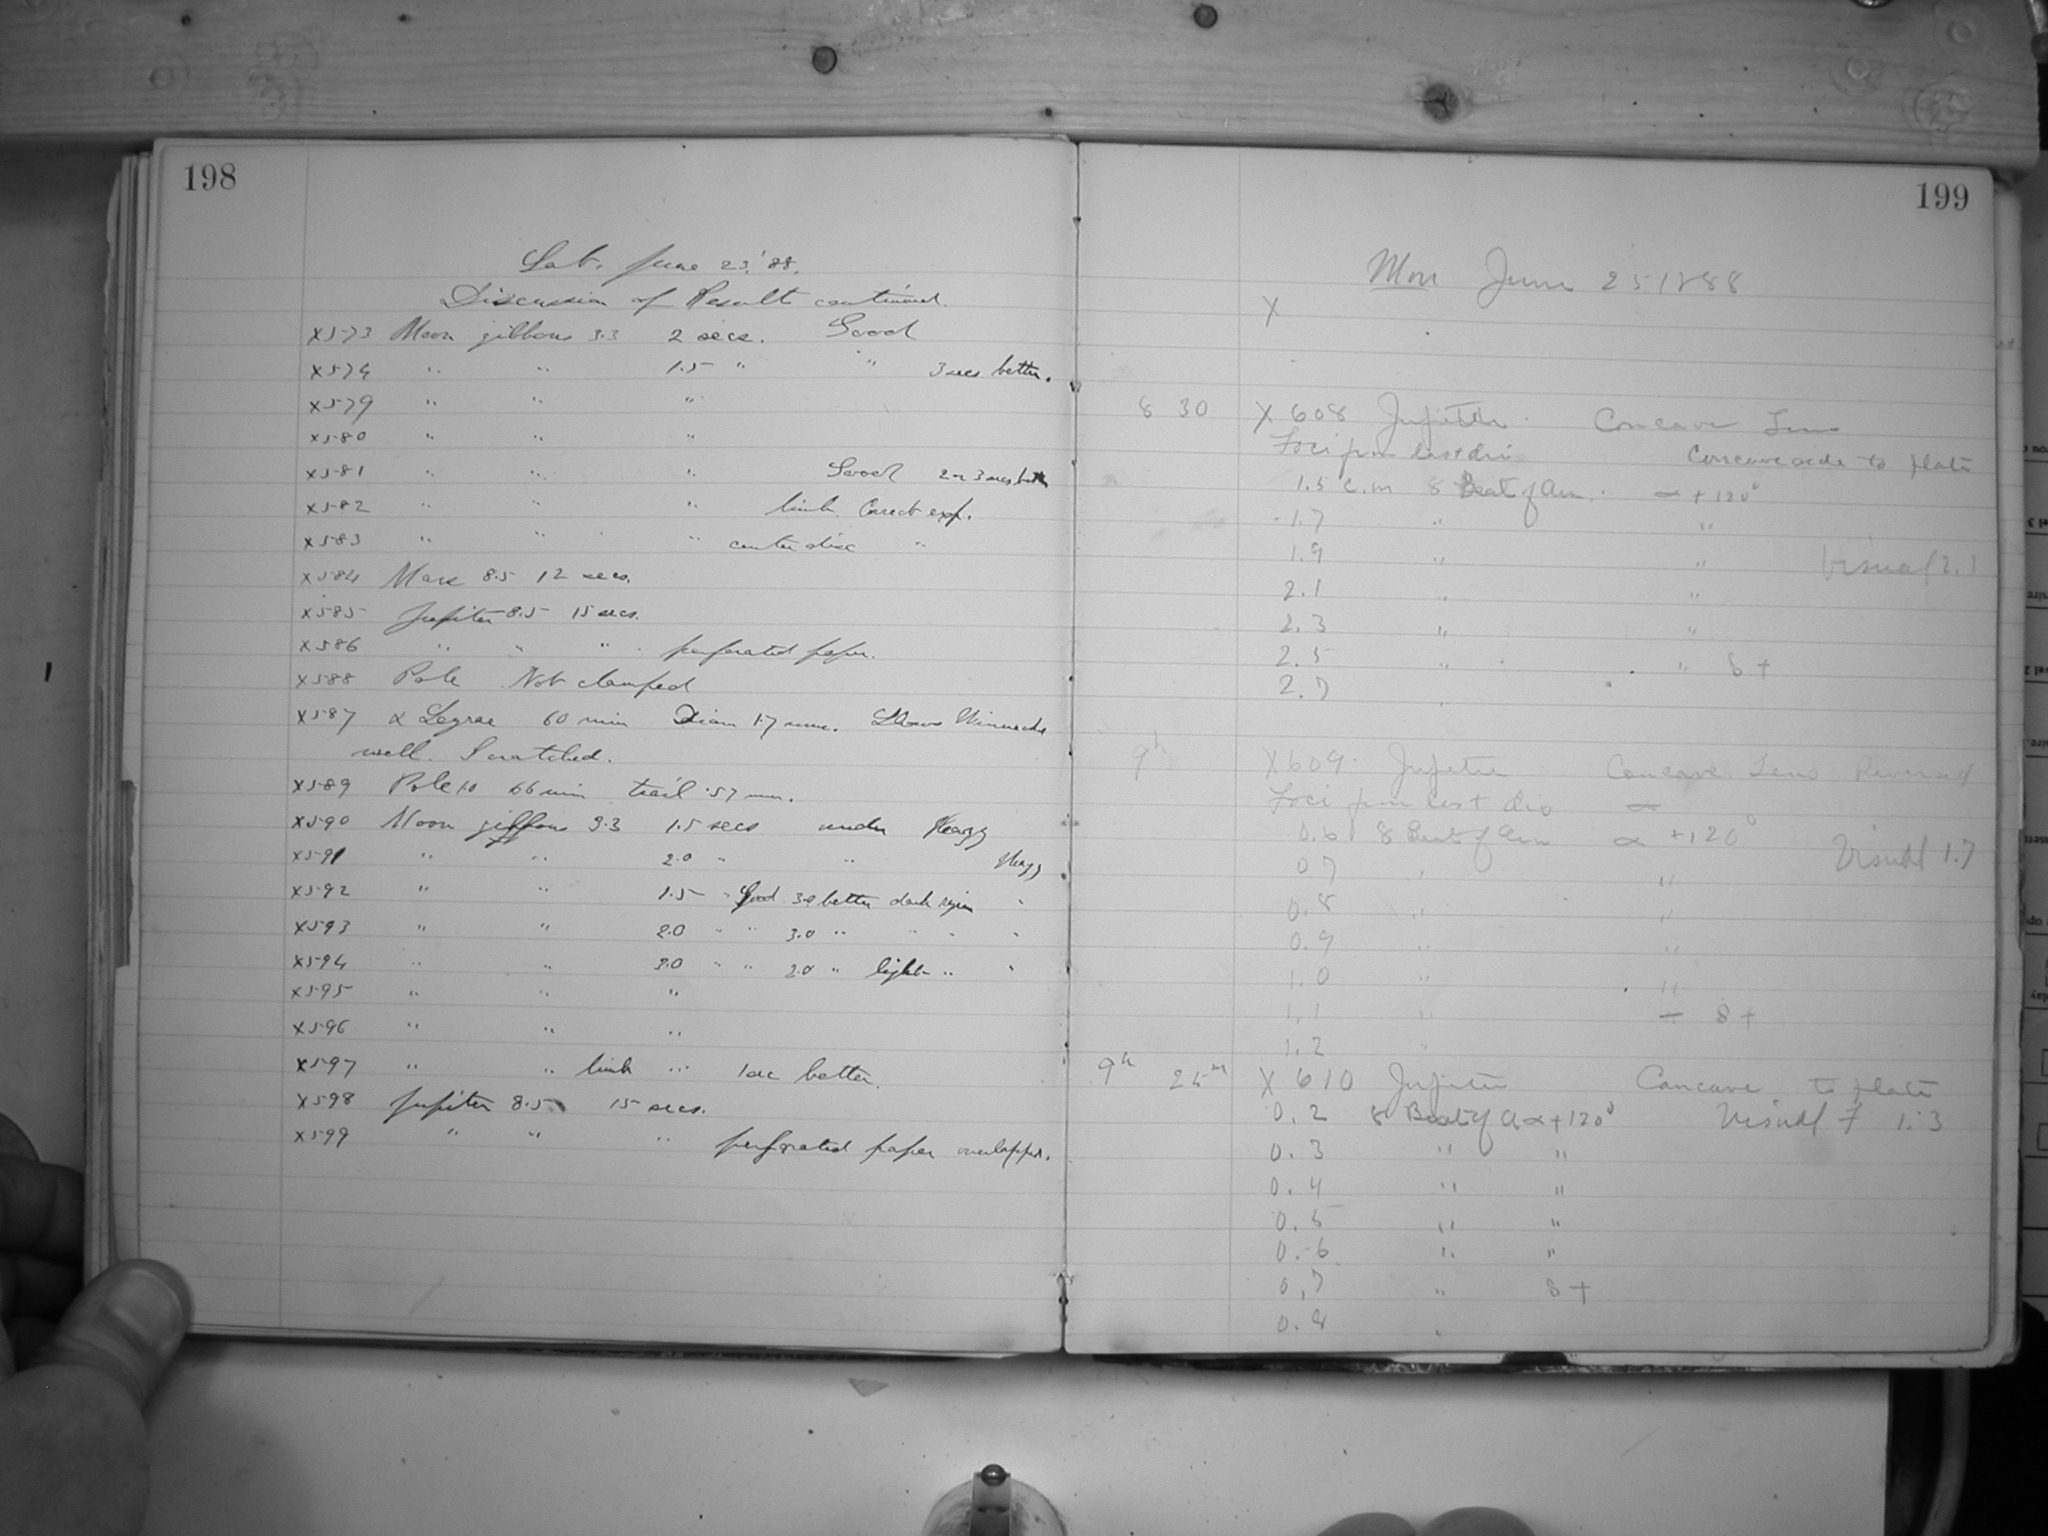 198
Sat. June 23, '88.
Discussion of Results continued.
X573 Moon gibbous 3.3 2 secs. Good
X574 " " 1.5 " " 3 secs better.
X579 " " "
X580 " " "
X581 " " " Good 2 or 3 secs
X582 " " " limb Correct exp.
X583 " " " center disc "
X584 Mars 8.5 12 secs.
X585 Jupiter 8.5 15 secs.
X586 " " " perforated paper.
X588 Pole Not clamped
X587 α Lyrae 60 min Diam 1.7 mm. Shows
well. Scratched.
X589 Pole 10 66 min trail .57 mm.
X590 Moon gibbous 3.3 1.5 secs under Heazy
X591 " " 2.0 " " Heazy
X592 " " 1.5 " Good 3.0 better dark region "
X593 " " 2.0 " " 3.0 " " " "
X594 " " 3.0 " " 2.0 " light " "
X595 " " "
X596 " " "
X597 " " limb " 1 sec better.
X598 Jupiter 8.5 15 secs.
X599 " " " perforated paper overlapped.
199
Mon June 25 1888
X
8 30 X 608 Jupiter Concave Lens
Foci from last div Concave side to plate
1.5 c.m 8 Beat of Arm. α + 120°
1.7 " "
1.9 " " Visual 2.1
2.1 " "
2.3 " "
2.5 " " 8 +
2.7
9h X 609 Jupiter Concave Lens Reversed
Foci from last div α
0.6 8 Beat of Arm α + 120° Visual 1.7
0.7 " "
0.8 " "
0.9 " "
1.0 " "
1.1 " 8 +
1.2 "
9h 25m X 610 Jupiter Concave to plate
0.2 8 Beat of A α + 120° Visual F 1.3
0.3 " "
0.4 " "
0.5 " "
0.6 " "
0.7 " 8 +
0.8 "